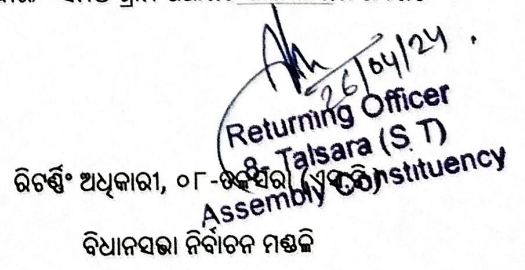 26/04/24.
Returning Officer
8- Talsara (S.T)
Assembly Constituency
ରିଟର୍ଣ୍ଣିଂ ଅଧିକାରୀ, ୦୮-ତଳସରା (ଏସ୍.ଟି)
ବିଧାନସଭା ନିର୍ବାଚନ ମଣ୍ଡଳି